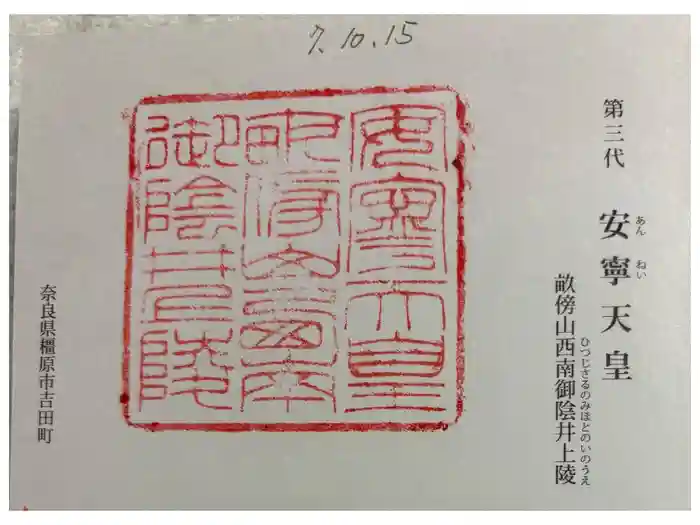 7.10.15
第三代
安寧天皇
あんねい
畝傍山西南御陰井上陵
ひつじさるのみほとのいのうえ
安寧天皇
畝傍山西南
御陰井上陵
奈良県橿原市吉田町